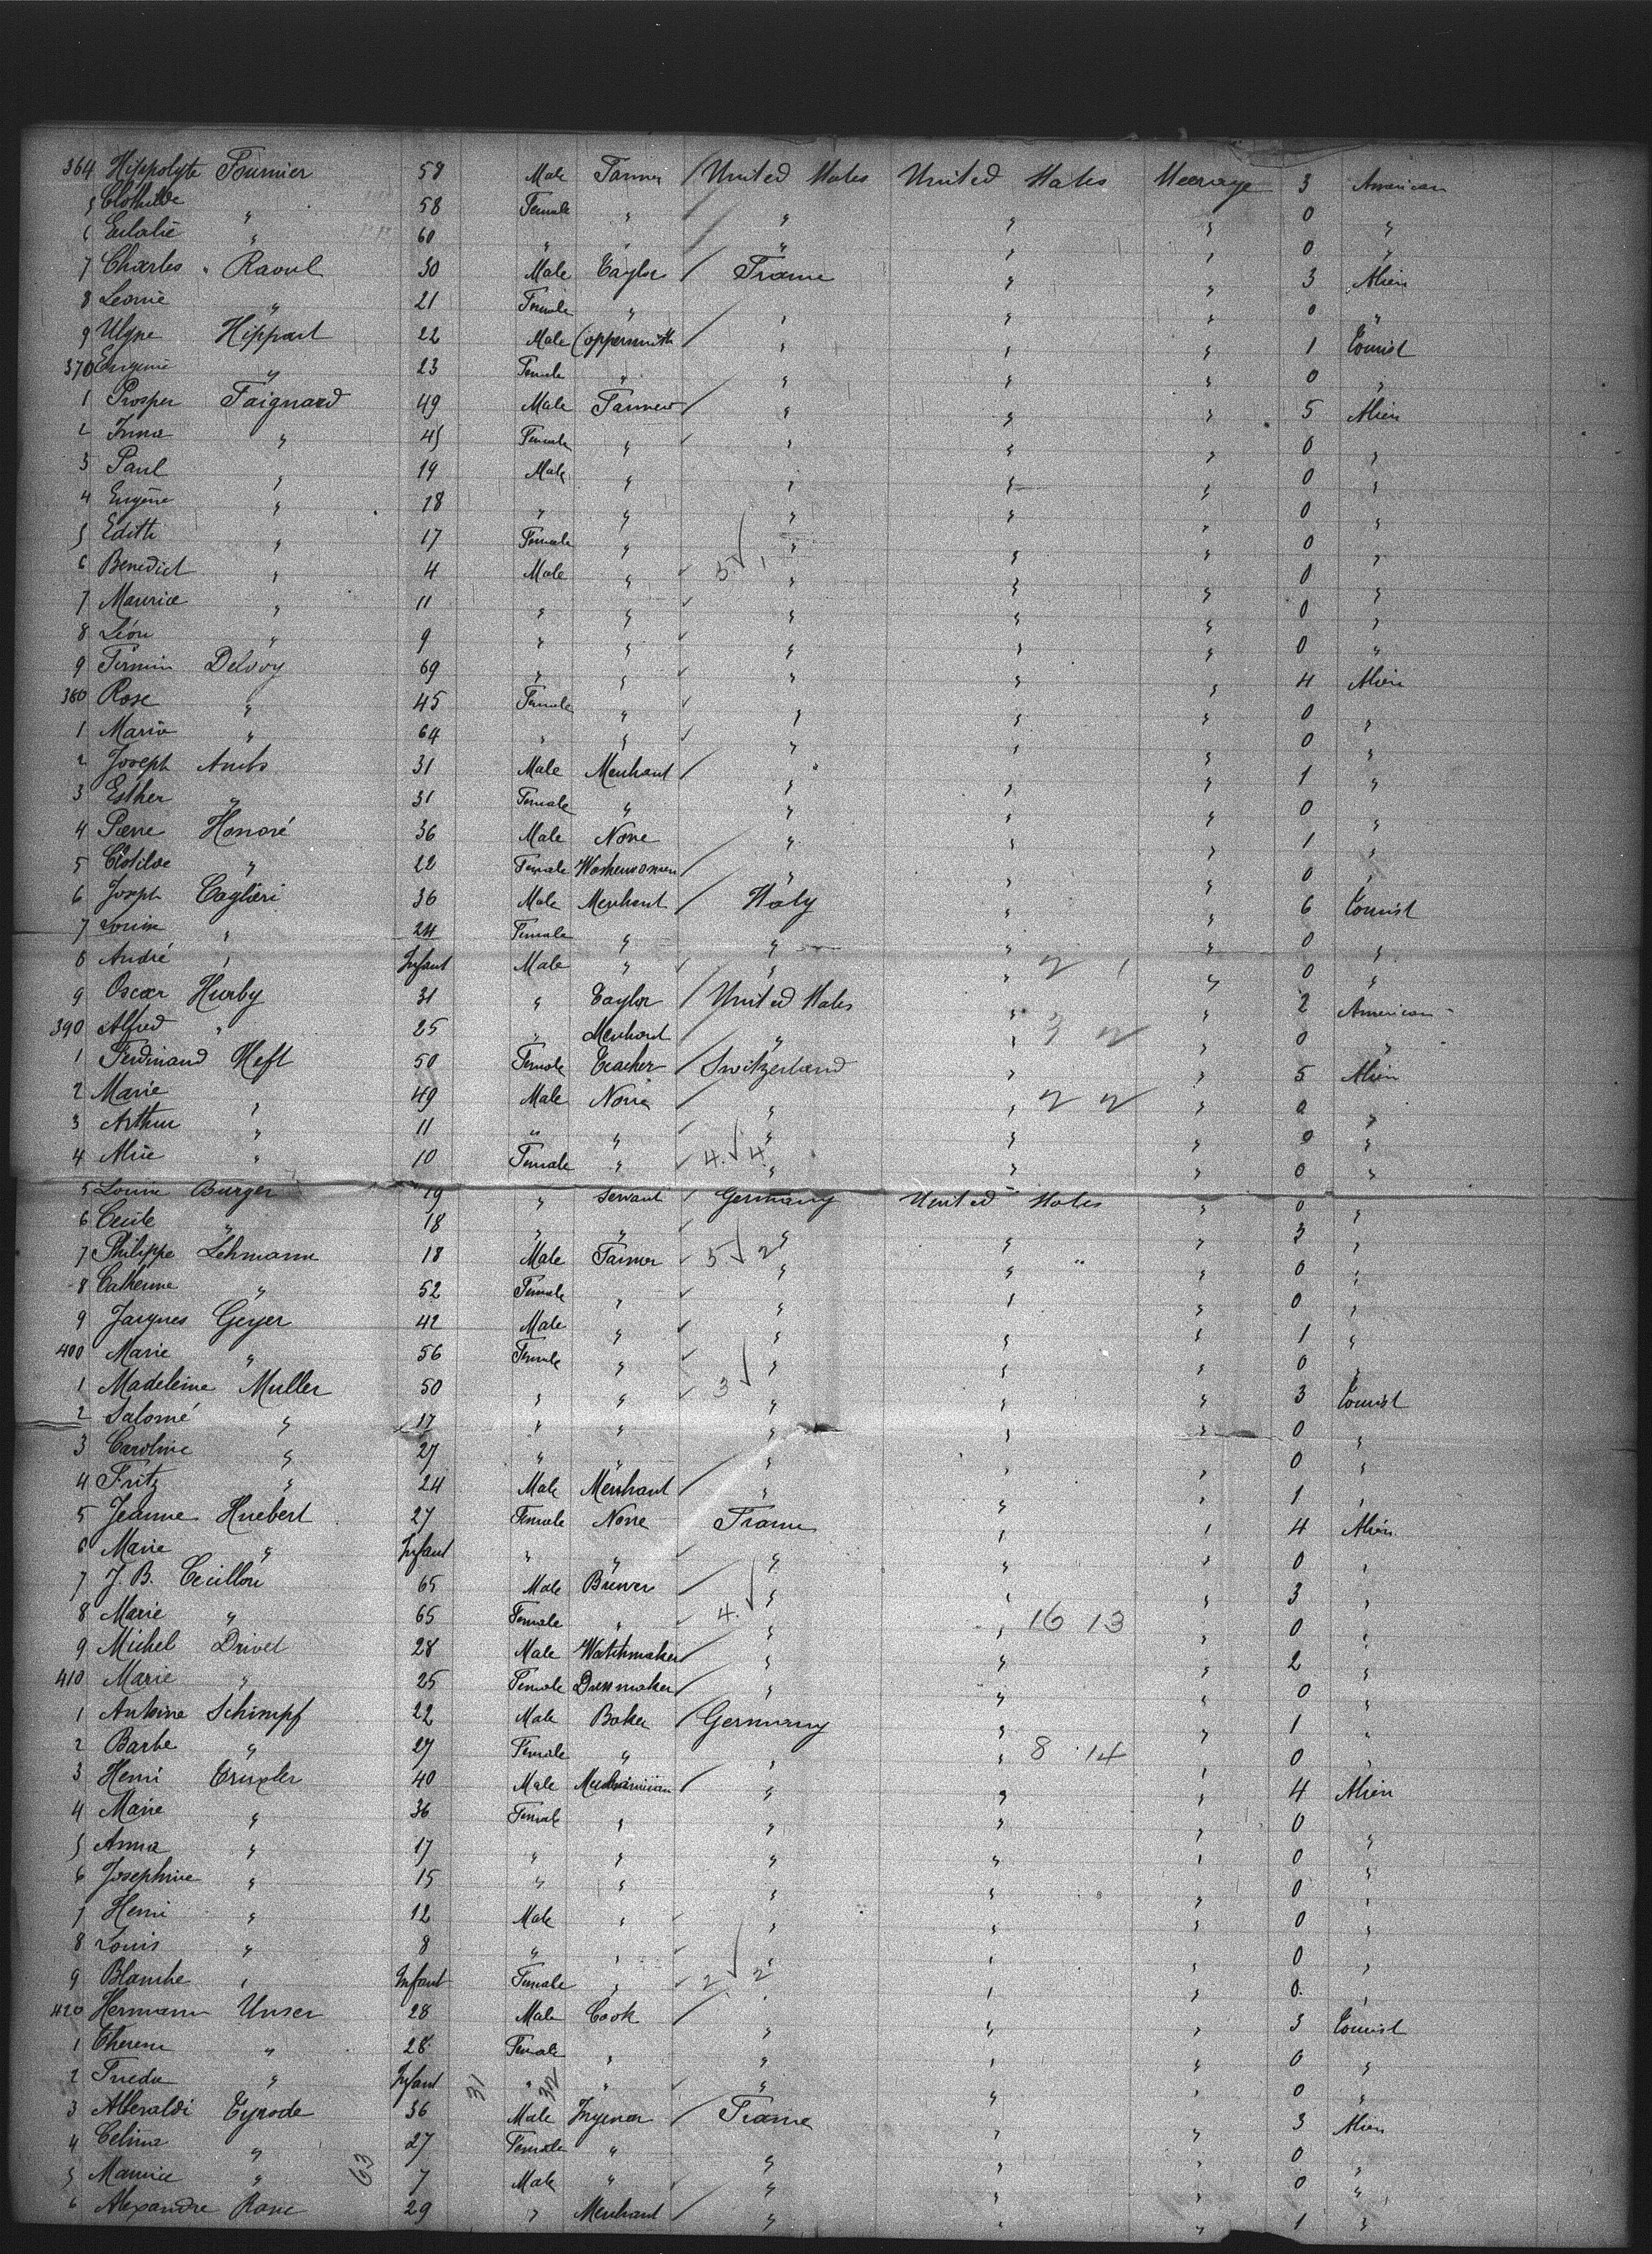 364 Hippolyte Fournier 58 Male Farmer / United States United States Steerage 3 American
5 Clothilde " 58 Female " / " " " 0 "
6 Eulalie " 60 " " " " " 0 "
7 Charles " Raoul 30 Male Taylor / France " " 3 Alien
8 Leonie " 21 Female " " " " 0 "
9 Ulysse Hippart 22 Male Coppersmith / " " " 1 Tourist
370 Eugenie " 23 Female " " " " 0 "
1 Prosper Faignard 49 Male Farmer / " " " 5 Alien
2 Irma " 45 Female " ✓ " " " 0 "
3 Paul " 19 Male " " " " 0 "
4 Eugène " 18 " " " " " 0 "
5 Edith " 17 Female " " " " 0 "
6 Benedict " 4 Male " ✓ 3 √ 1 " " " 0 "
7 Maurice " 11 " " ✓ " " " 0 "
8 Léon " 9 " " ✓ " " " 0 "
9 Firmin Delvoy 69 " " ✓ " " " 4 Alien
380 Rose " 45 Female " ✓ " " " 0 "
1 Maria " 64 " " ✓ " " " 0 "
2 Joseph 31 Male Merchant / " " " 1 "
3 Esther " 31 Female " " " " 0 "
4 Pierre Honoré 36 Male None / " " " 1 "
5 Clotilde " 22 Female Washerwoman / " " " 0 "
6 Joseph Caglieri 36 Male Merchant / Italy " " 6 Tourist
7 Louise " 24 Female " " " " 0 "
8 André " Infant Male " ✓ " " 2 1 " 0 "
9 Oscar Hurby 31 " Taylor / United States " " 2 American
390 Alfred " 25 " Merchant / " " 3 2 " 0 "
1 Ferdinand Heft 50 Female Teacher / Switzerland " " 5 Alien
2 Marie " 49 Male None / " " 2 2 " 0 "
3 Arthur " 11 " " ✓ " " " 0 "
4 Alice " 10 Female " ✓ 4 √ 4 " " " 0 "
5 Louise Burger 19 " Servant / Germany United States " 0 "
6 Cecile " 18 " " ✓ " " " 3 "
7 Philippe Lehmann 18 Male Farmer ✓ 5 √ 2 " " " 0 "
8 Catherine " 52 Female " ✓ " " " 0 "
9 Jacques Geyer 42 Male " ✓ " " " 1 "
400 Marie " 56 Female " ✓ " " " 0 "
1 Madeleine Muller 50 " " ✓ 3 √ " " " 3 Tourist
2 Salomé " 17 " " " " " 0 "
3 Caroline " 27 " " " " " 0 "
4 Fritz " 24 Male Merchant / " " " 1 "
5 Jeanne Huebert 27 Female None France " " 4 Alien
6 Marie " Infant " " ✓ " " " 0 "
7 J. B. Cecillon 65 Male Brewer / " " " 3 "
8 Marie " 65 Female " ✓ 4 √ " " 16 13 " 0 "
9 Michel Drivet 28 Male Watchmaker / " " " 2 "
410 Marie " 25 Female Dressmaker / " " " 0 "
1 Antoine Schimpf 22 Male Baker / Germany " " 1 "
2 Barbe " 27 Female " " " 8 14 " 0 "
3 Henri 40 Male Mechanician / " " " 4 Alien
4 Marie " 36 Female " " " " 0 "
5 Anna " 17 " " " " " 0 "
6 Josephine " 15 " " " " " 0 "
7 Henri " 12 Male " ✓ " " " 0 "
8 Louis " 8 " " ✓ " " " 0 "
9 Blanche " Infant Female " ✓ 2 √ 2 " " 0 "
420 Hermann Unser 28 Male Cook / " " " 3 Tourist
1 Therese " 28 Female " " " " 0 "
2 " Infant 31 " 32 " ✓ " " " 0 "
3 Tyrode 36 Male / France " " 3 Alien
4 Celina " 27 Female " " " " 0 "
5 Maurice " 63 7 Male " ✓ " " " 0 "
6 Alexandre 29 " Merchant / " " " 1 "